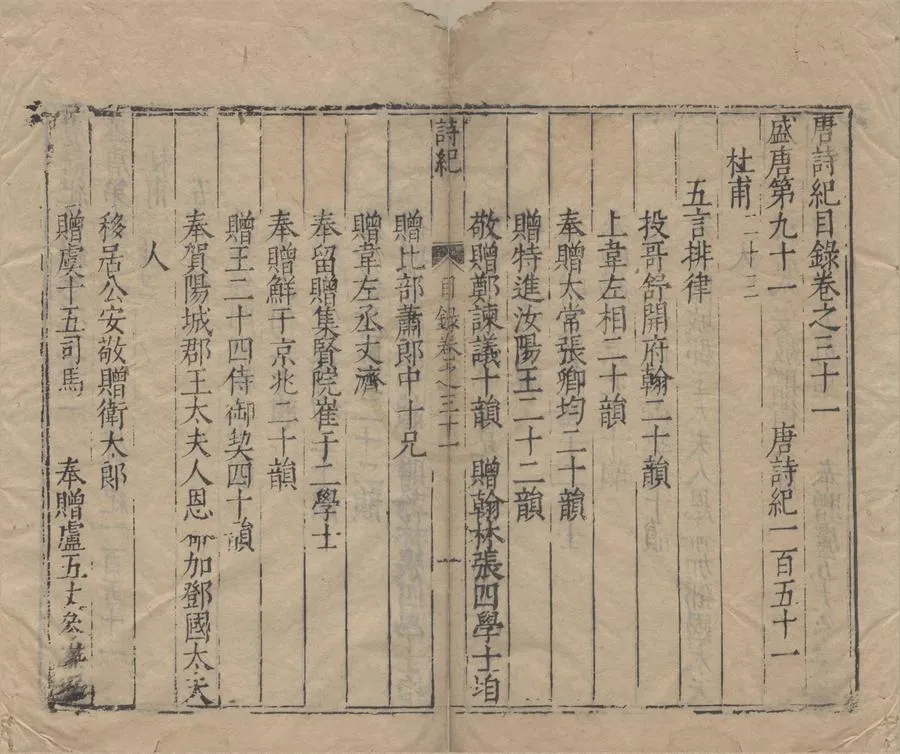 唐詩紀目錄卷之三十一
盛唐第九十一 唐詩紀一百五十一
杜甫二十三
五言排律
投哥舒開府翰二十韻
上韋左相二十韻
奉贈太常張卿均二十韻
贈特進汝陽王二十二韻
敬贈鄭諫議十韻 贈翰林張四學士垍
詩紀 目錄卷之三十一 一
贈比部蕭郎中十兄
贈韋左丞丈濟
奉留贈集賢院崔于二學士
奉贈鮮于京兆二十韻
贈王二十四侍御契四十韻
奉賀陽城郡王太夫人恩命加鄧國太夫
人
移居公安敬贈衛大郎
贈虞十五司馬 奉贈盧五丈參